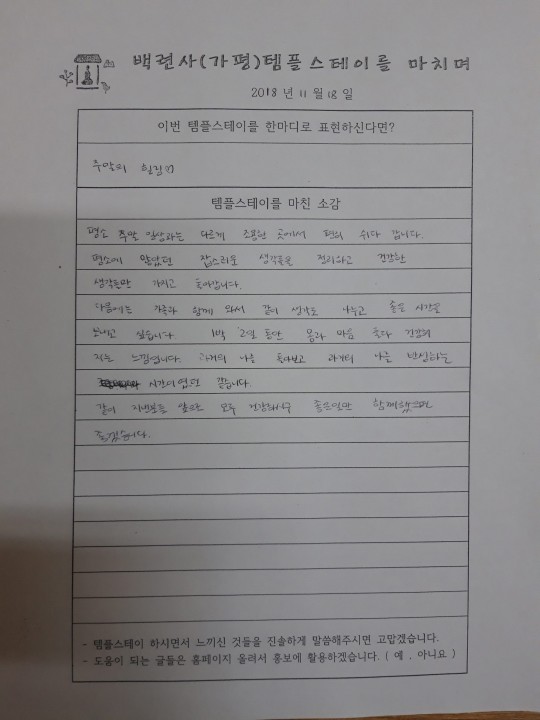 백련사(가평)템플스테이를 마치며
2018 년 11 월 18 일
이번 템플스테이를 한마디로 표현하신다면?
주말의 힐링
템플스테이를 마친 소감
평소 주말 일상과는 다르게 조용한 곳에서 편히 쉬다 갑니다.
평소에 많았던 잡스러운 생각들을 정리하고 건강한
생각들만 가지고 돌아갑니다.
다음에는 가족과 함께 와서 같이 생각도 나누고 좋은 시간을
보내고 싶습니다. 1박 2일 동안 몸과 마음 둘다 건강해
지는 느낌입니다. 과거의 나를 돌아보고 과거의 나를 반성하는
시간이였던 같습니다.
같이 지낸분들 앞으로 모두 건강하시구 좋은일만 함께했으면
좋겠습니다.
- 템플스테이 하시면서 느끼신 것들을 진솔하게 말씀해주시면 고맙겠습니다.
- 도움이 되는 글들은 홈페이지 올려서 홍보에 활용하겠습니다. ( 예 , 아니요 )